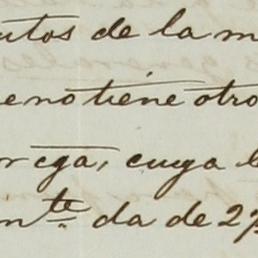 utos de la m
e no tiene otro
r cga, cuya l
nte da de 27